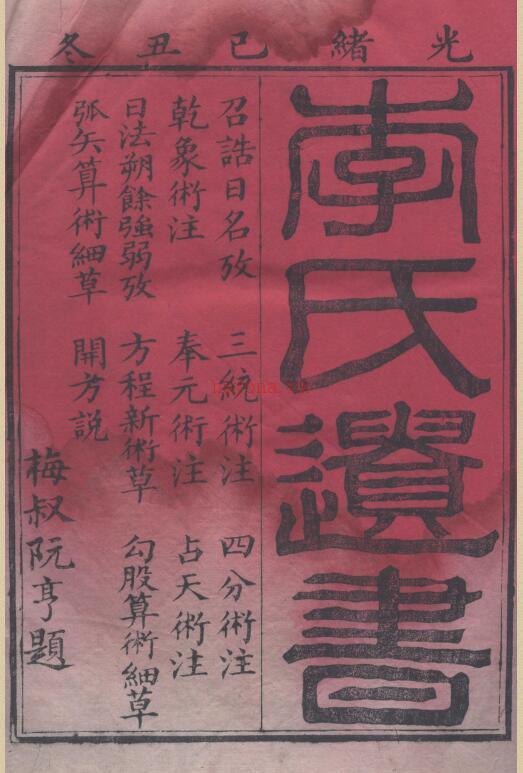 光緒己丑冬
李氏遺書
召誥日名攷 三統術注 四分術注
乾象術注 奉元術注 占天術注
日法朔餘強弱攷 方程新術草 勾股算術細草
弧矢算術細草 開方說
梅叔阮亨題